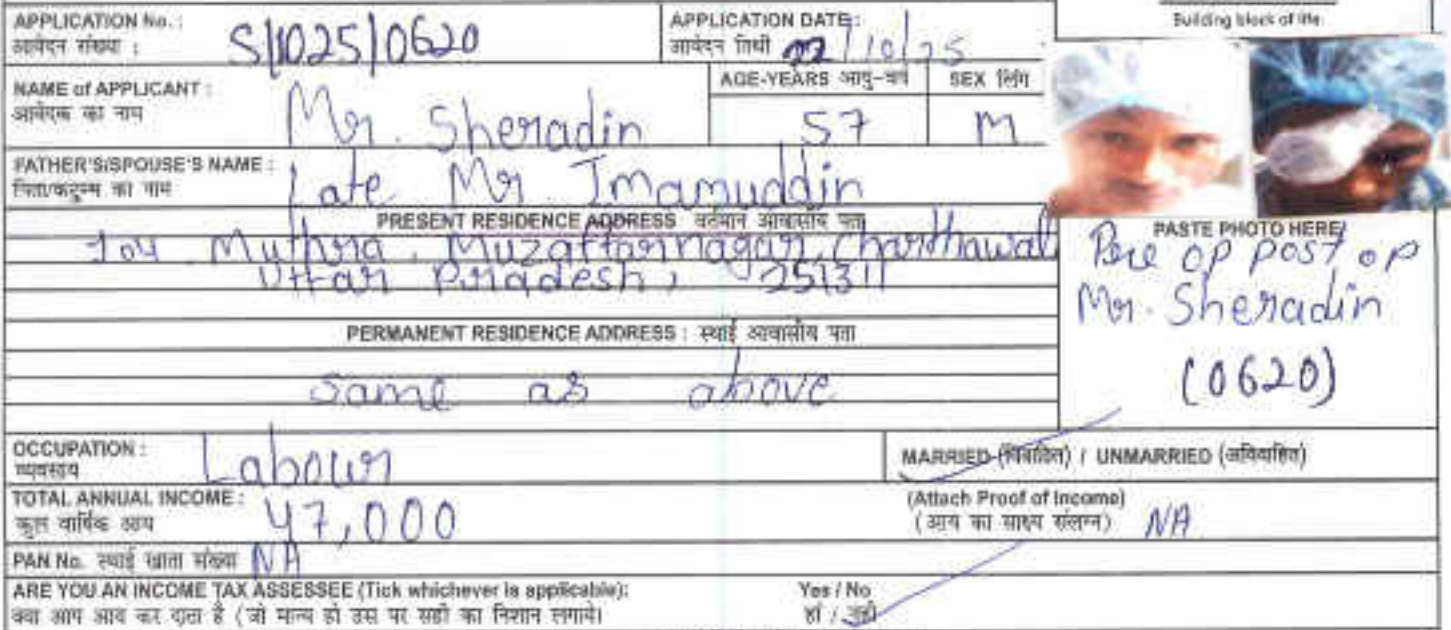 Building block of life
APPLICATION No. :
आवेदन संख्या :
S/1025/0620
APPLICATION DATE :
आवेदन तिथी
22/10/25
NAME of APPLICANT :
आवेदक का नाम
Mr. Sheradin
AGE-YEARS आयु-वर्ष
57
SEX लिंग
M
FATHER'S/SPOUSE'S NAME :
पिता/कटुम्ब का नाम
Late Mr Imamuddin
PRESENT RESIDENCE ADDRESS वर्तमान आवासीय पता
Muthra, Muzaffarnagar, Charthawal
Uttar Pradesh, 251311
PERMANENT RESIDENCE ADDRESS : स्थाई आवासीय पता
Same as above
PASTE PHOTO HERE
Pre op post op
Mr. Sheradin
(0620)
OCCUPATION :
व्यवसाय
Labour
MARRIED (विवाहित) / UNMARRIED (अविवाहित)
TOTAL ANNUAL INCOME :
कुल वार्षिक आय
47,000
(Attach Proof of Income)
(आय का साक्ष्य संलग्न) NA
PAN No. स्थाई खाता संख्या NA
ARE YOU AN INCOME TAX ASSESSEE (Tick whichever is applicable):
Yes / No
क्या आप आय कर दाता है (जो मान्य हो उस पर सही का निशान लगाये।
हां / नहीं